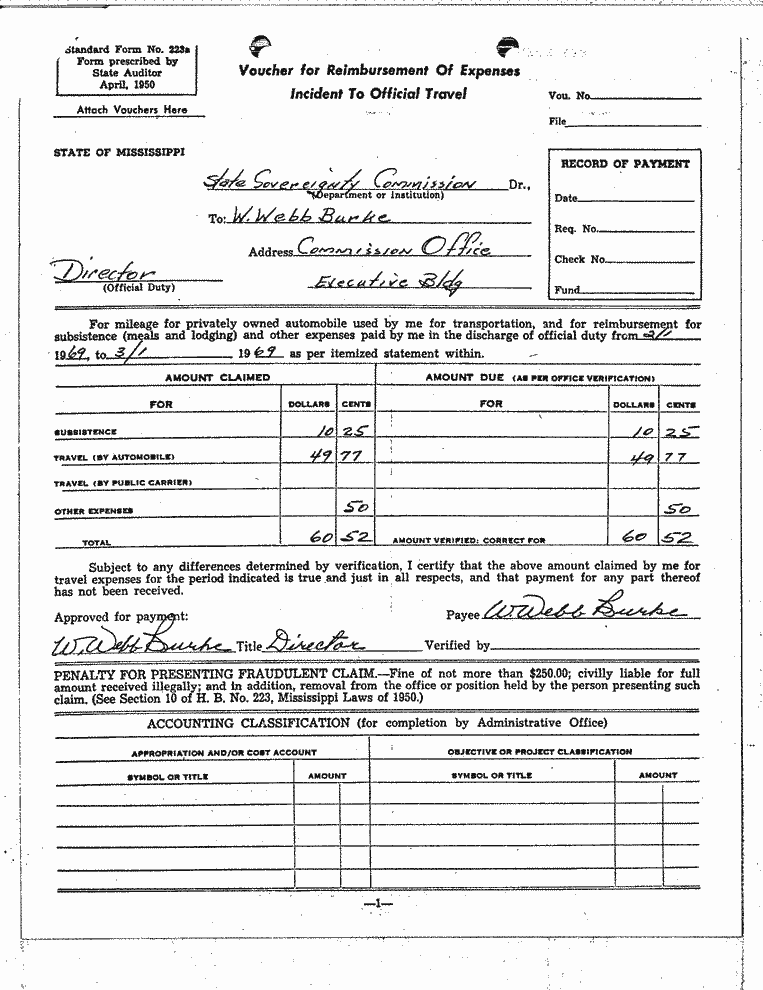 Standard Form No. 223a
Form prescribed by
State Auditor
April, 1950
Attach Vouchers Here
Voucher for Reimbursement Of Expenses
Incident To Official Travel
Vou. No.
File
STATE OF MISSISSIPPI
State Sovereignty Commission Dr.,
(Department or Institution)
To: W. Webb Burke
Address Commission Office
Director Executive Bldg
(Official Duty)
RECORD OF PAYMENT
Date
Req. No.
Check No.
Fund
For mileage for privately owned automobile used by me for transportation, and for reimbursement for
subsistence (meals and lodging) and other expenses paid by me in the discharge of official duty from 2/1
1969, to 3/1 1969 as per itemized statement within.
AMOUNT CLAIMED AMOUNT DUE (AS PER OFFICE VERIFICATION)
FOR DOLLARS CENTS FOR DOLLARS CENTS
SUBSISTENCE 10 25 10 25
TRAVEL (BY AUTOMOBILE) 49 77 49 77
TRAVEL (BY PUBLIC CARRIER)
OTHER EXPENSES 50 50
TOTAL 60 52 AMOUNT VERIFIED: CORRECT FOR 60 52
Subject to any differences determined by verification, I certify that the above amount claimed by me for
travel expenses for the period indicated is true and just in all respects, and that payment for any part thereof
has not been received.
Approved for payment: Payee W. Webb Burke
W. Webb Burke Title Director Verified by
PENALTY FOR PRESENTING FRAUDULENT CLAIM.—Fine of not more than $250.00; civilly liable for full
amount received illegally; and in addition, removal from the office or position held by the person presenting such
claim. (See Section 10 of H. B. No. 223, Mississippi Laws of 1950.)
ACCOUNTING CLASSIFICATION (for completion by Administrative Office)
APPROPRIATION AND/OR COST ACCOUNT OBJECTIVE OR PROJECT CLASSIFICATION
SYMBOL OR TITLE AMOUNT SYMBOL OR TITLE AMOUNT
—1—